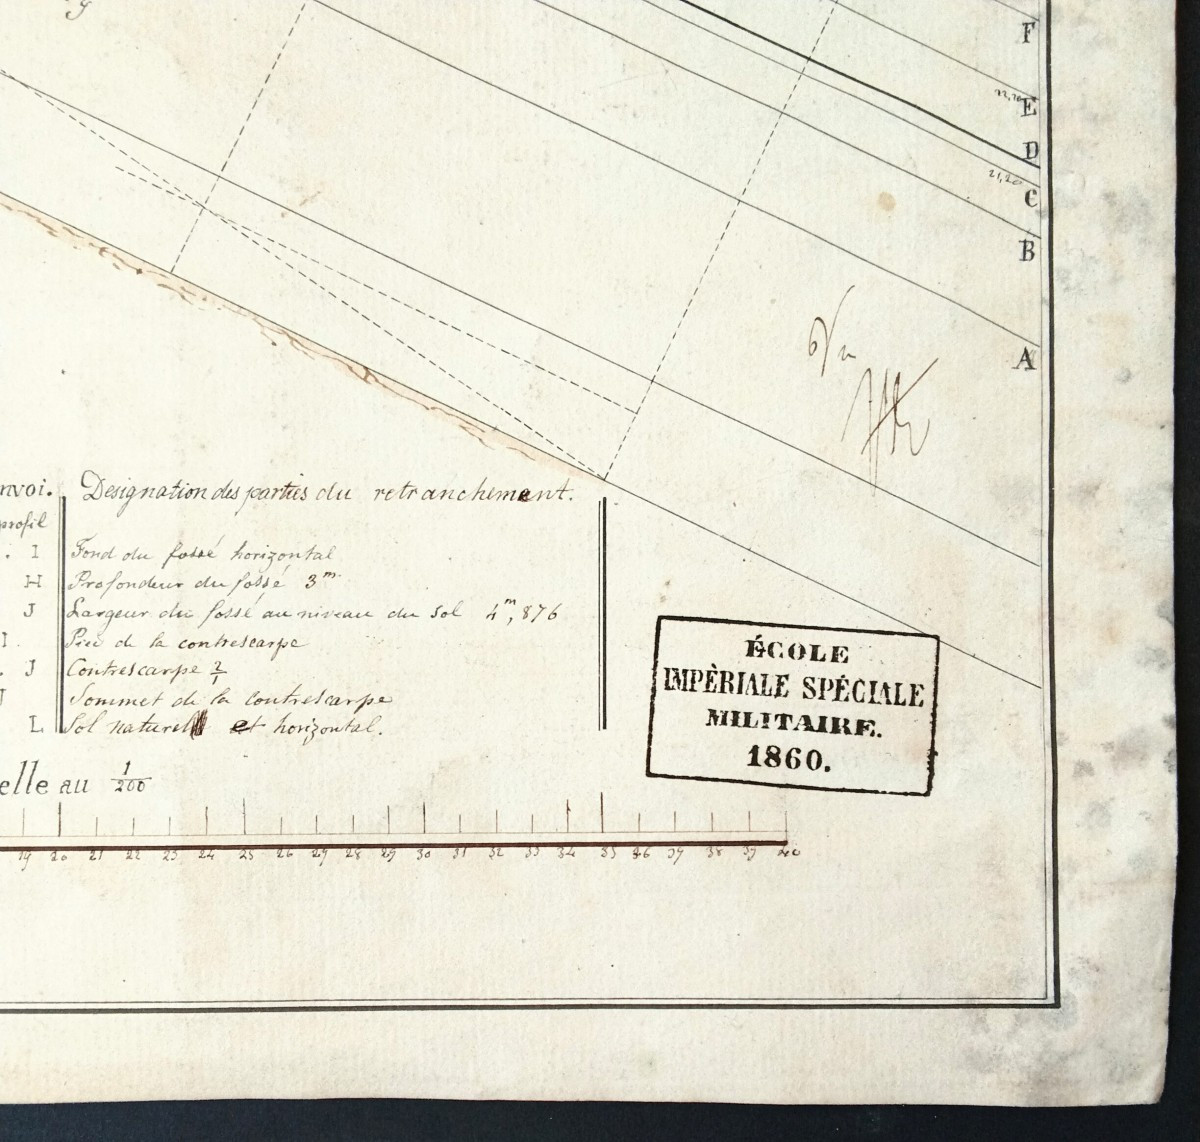 g
F
22,70
E
D
21,20
C
B
A
Vu
nvoi. Designation des parties du retranchement.
profil
. I Fond du fossé horizontal
H Profondeur du fossé 3m.
J Largeur du fossé au niveau du sol 4m,876
I. Pied de la contrescarpe
. J Contrescarpe 2/1
J Sommet de la contrescarpe
L Sol naturel et horizontal.
elle au 1/200
19 20 21 22 23 24 25 26 27 28 29 30 31 32 33 34 35 36 37 38 39 40
ÉCOLE
IMPÈRIALE SPÉCIALE
MILITAIRE.
1860.